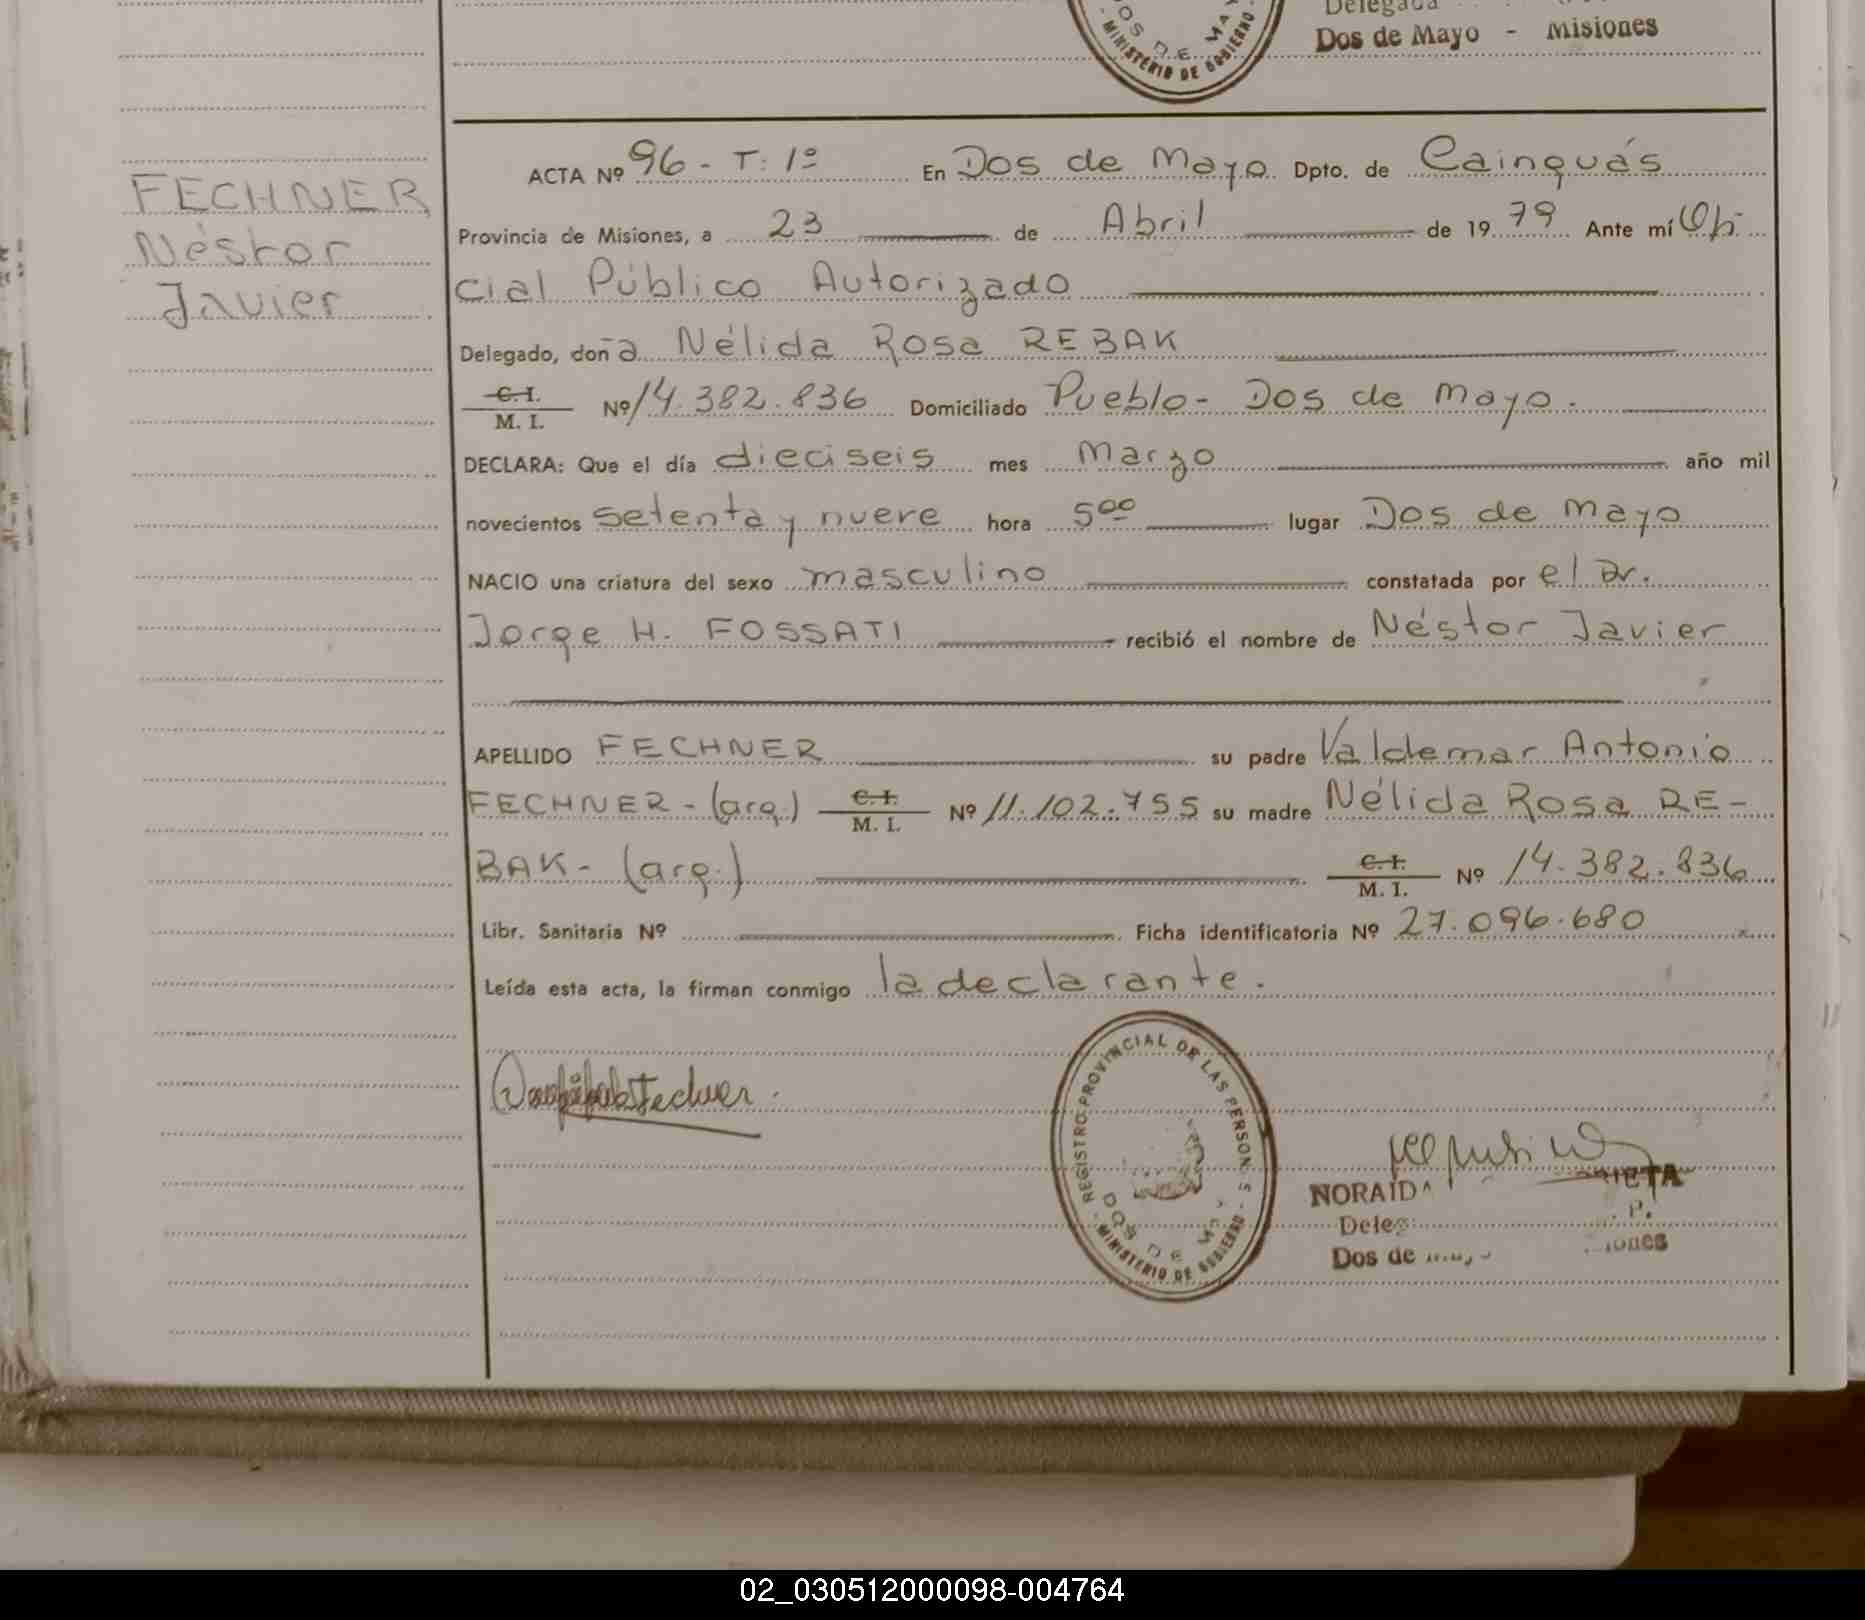 Delegada
Dos de Mayo - Misiones
DOS DE MAY
MINISTERIO DE GOBIERNO
FECHNER
Néstor
Javier
ACTA Nº 96 - T: 1º En Dos de Mayo Dpto. de Cainguás
Provincia de Misiones, a 23 de Abril de 1979 Ante mí Ofi-
cial Público Autorizado
Delegado, doña Nélida Rosa REBAK
C. I.
M. I. Nº 14.382.836 Domiciliado Pueblo - Dos de Mayo.
DECLARA: Que el día dieciseis mes Marzo año mil
novecientos setenta y nueve hora 5 00 lugar Dos de Mayo
NACIO una criatura del sexo masculino constatada por el Dr.
Jorge H. FOSSATI recibió el nombre de Néstor Javier
APELLIDO FECHNER su padre Valdemar Antonio
FECHNER - (arg.) C. I. M. I. Nº 11.102.755 su madre Nélida Rosa RE-
BAK - (arg.) C. I. M. I. Nº 14.382.836
Libr. Sanitaria Nº Ficha identificatoria Nº 27.096.680
Leída esta acta, la firman conmigo la declarante.
Fechner
REGISTRO PROVINCIAL DE LAS PERSONAS
DOS DE MAY
MINISTERIO DE GOBIERNO
NORAIDA
P.
Dos de
02_030512000098-004764